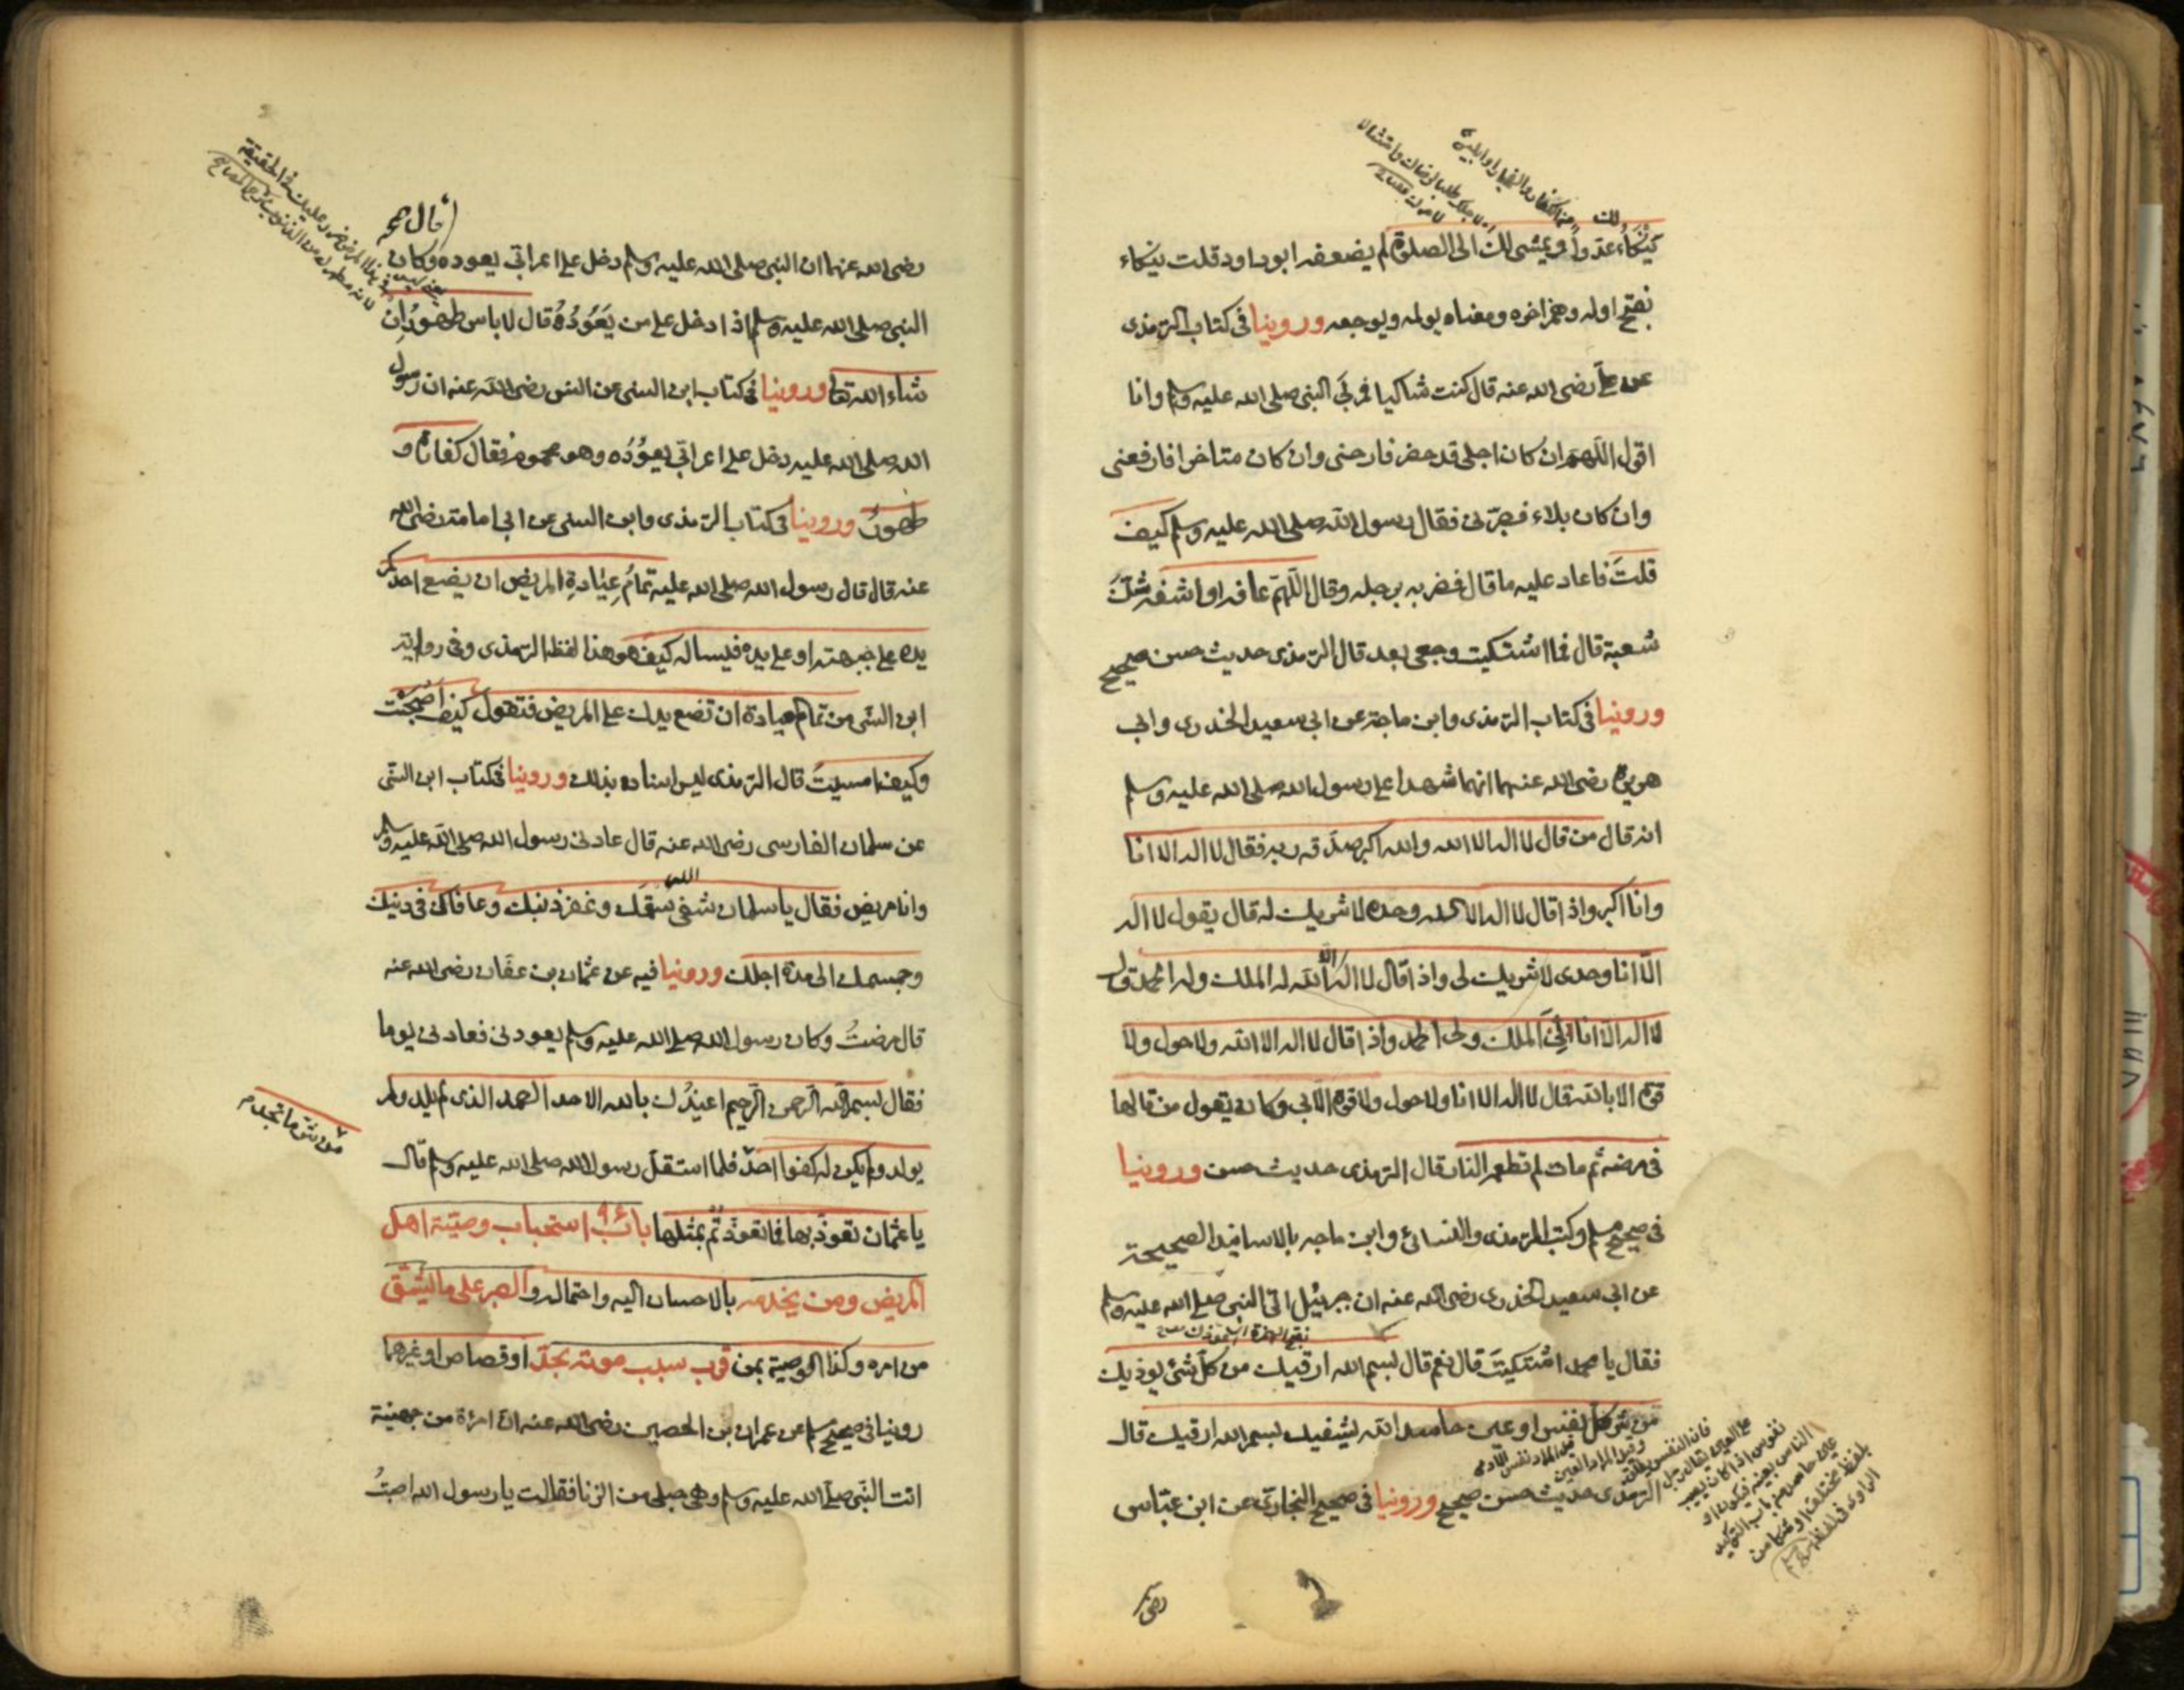 ينكاء عدوا او يمشى لك الى الصلوة لم يضعفه ابو داود قلت ينكاء
بفتح اوله وهمز اخره ومعناه يولمه ويوجعه وروينا فى كتاب الترمذى
عن على رضى الله عنه قال كنت شاكيا فمر بى النبى صلى الله عليه وسلم وانا
اقول اللهم ان كان اجلى قد حضر فارحنى وان كان متاخرا فارفعنى
وان كان بلاء فصبرنى فقال رسول الله صلى الله عليه وسلم كيف
قلت فاعاد عليه ما قال فضربه برجله وقال اللهم عافه او اشفه شك
شعبة قال فما اشتكيت وجعى بعد قال الترمذى حديث حسن صحيح
وروينا فى كتاب الترمذى وابن ماجة عن ابى سعيد الخدرى وابى
هريرة رضى الله عنهما انهما شهدا على رسول الله صلى الله عليه وسلم
انه قال من قال لا اله الا الله والله اكبر صدقه ربه فقال لا اله الا انا
وانا اكبر واذا قال لا اله الا الله وحده لا شريك له قال يقول لا اله
الا انا وحدى لا شريك لى واذا قال لا اله الا الله له الملك وله الحمد قال
لا اله الا انا لى الملك ولى الحمد واذا قال لا اله الا الله ولا حول ولا
قوة الا بالله قال لا اله الا انا ولا حول ولا قوة الا بى وكان يقول من قالها
فى مرضه ثم مات لم تطعمه النار قال الترمذى حديث حسن وروينا
فى صحيح مسلم وكتب الترمذى والنسائى وابن ماجه بالاسانيد الصحيحة
عن ابى سعيد الخدرى رضى الله عنه ان جبرئيل اتى النبى صلى الله عليه وسلم
فقال يا محمد اشتكيت قال نعم قال بسم الله ارقيك من كل شئ يوذيك
من شر كل نفس او عين حاسد الله يشفيك بسم الله ارقيك قال
الترمذى حديث حسن صحيح وروينا فى صحيح البخارى عن ابن عباس
رضى
رضى الله عنهما ان النبى صلى الله عليه وسلم دخل على اعرابى يعوده وكان
النبى صلى الله عليه وسلم اذا دخل على من يَعُودُهُ قال لا باس طهورٌ ان
شاء الله تعا وروينا فى كتاب ابن السنى عن انس رضى الله عنه ان رسول
الله صلى الله عليه دخل على اعرابى يعوده وهو محموم فقال كفارة و
طهور وروينا فى كتاب الترمذى وابن السنى عن ابى امامة رضى الله
عنه قال قال رسول الله صلى الله عليه تمام عيادة المريض ان يضع احدكم
يده على جبهته او على يده فيساله كيف هو هذا لفظ الترمذى وفى رواية
ابن السنى من تمام العيادة ان تضع يدك على المريض فتقول كيف اصبحت
وكيف امسيت قال الترمذى ليس اسناده بذلك وروينا فى كتاب ابن السنى
عن سلمان الفارسى رضى الله عنه قال عادنى رسول الله صلى الله عليه وسلم
وانا مريض فقال يا سلمان شفى الله سقمك وغفر ذنبك وعافاك فى دينك
وجسمك الى مدة اجلك وروينا فيه عن عثمان بن عفان رضى الله عنه
قال مرضت وكان رسول الله صلى الله عليه وسلم يعودنى فعادنى يوما
فقال بسم الله الرحمن الرحيم اعيذك بالله الاحد الصمد الذى لم يلد ولم
يولد ولم يكن له كفوا احد من شر ما تجد فلما استقل رسول الله صلى الله عليه وسلم قال
يا عثمان تعوذ بها فما تعوذتم بمثلها باب استحباب وصية اهل
المريض ومن يخدمه بالاحسان اليه واحتماله والصبر على ما يشق
من امره وكذا الوصية بمن قرب سبب موته بحد او قصاص او غيرهما
روينا فى صحيح مسلم عن عمران بن الحصين رضى الله عنه ان امرأة من جهينة
اتت النبى صلى الله عليه وسلم وهى حبلى من الزنا فقالت يا رسول الله اصبت